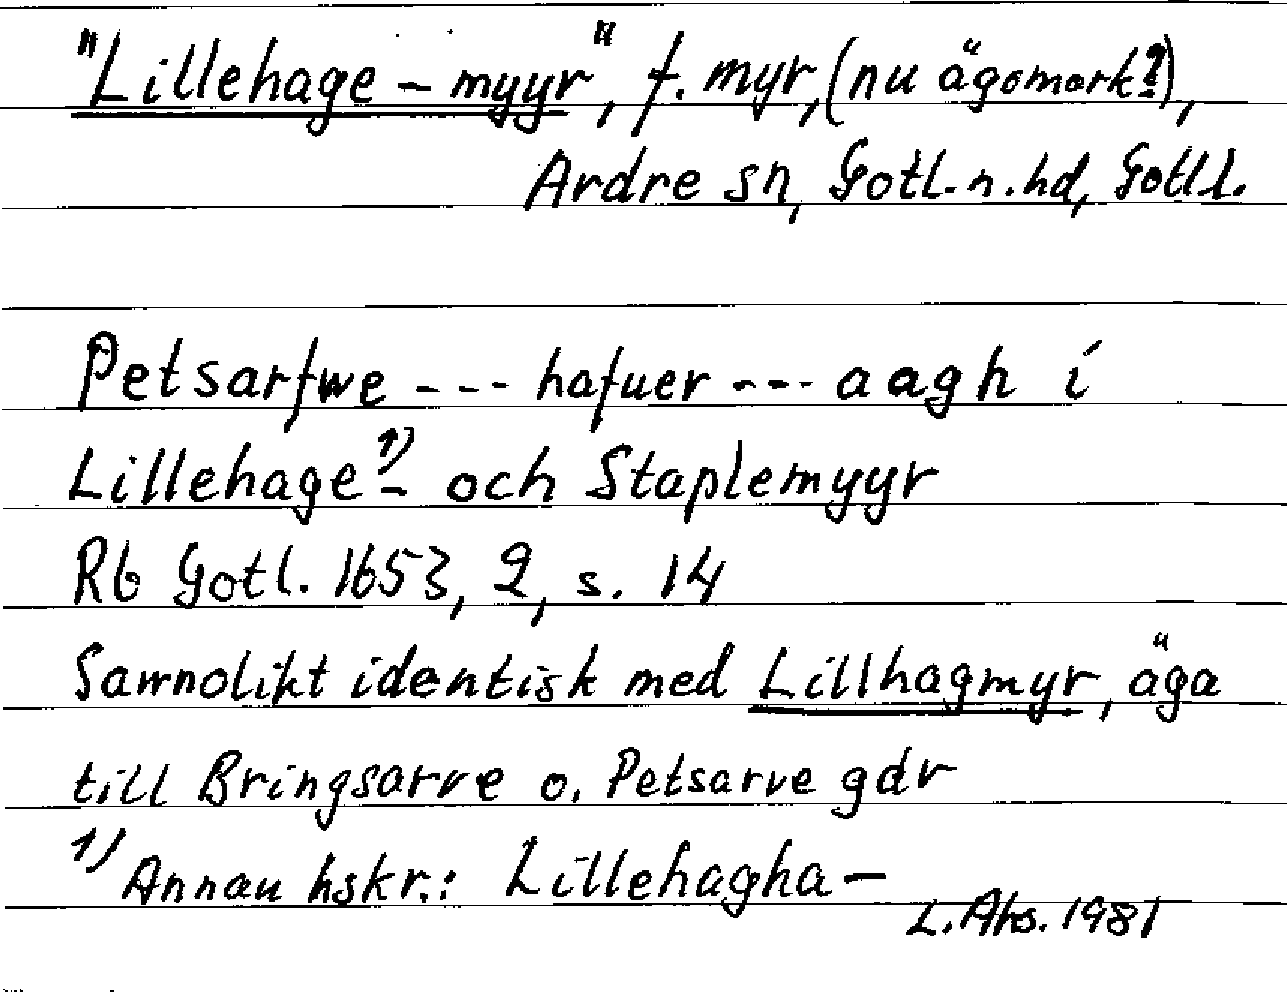 "Lillehage - myyr", f. myr, (nu ägomark?),
Ardre sn, Gotl. n. hd, Gotl l.
Petsarfwe --- hafuer --- aagh i
Lillehage 1)- och Staplemyyr
Rb Gotl. 1653, 2, s. 14
Sannolikt identisk med Lillhagmyr, äga
till Bringsarve o. Petsarve gdr
1) Annan hskr.: Lillehagha-
L. Ahs. 1981